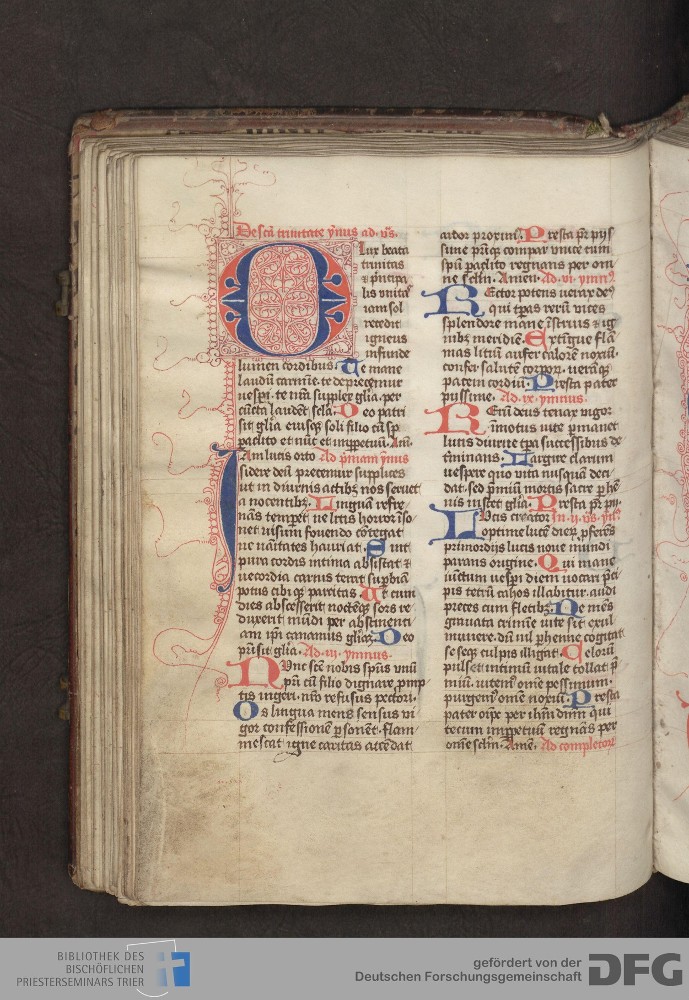 De scā trinitate ẏmus ad .vs̄.
O lux beata
trinitas
⁊ p̄ncipa
lis vnitas
iam sol
recedit
igneus
infunde
lumen cordibus. Te mane
laudū carmīe. te deprecemur
uespi. te nr̄a supplex gl̄ia. per
cūcta laudet sclā. Deo patri
sit gl̄ia eiusqꝫ soli filio cū sp̄
paclito et nūc et inppetuū. Am̄.
Iam lucis orto Ad p̄mam ẏmus
sidere deū precemur supplices
ut in diurnis actibꝫ nos seruet
a nocentibꝫ. Linguā refre
nās temperet ne litis horror īso
net uisum fouendo cōtegat
ne uanitates hauriat. Sint
pura cordis intima absistat ⁊
uecordia carnis terat supbiā
potus cibiqꝫ parcitas. Ut cum
dies abscesserit noctēqꝫ sors re
duxerit mūdi per abstinenti
am ip̄i canamus gl̄iaꝫ. Deo
pr̄i sit gl̄ia. Ad .iii. ymnus.
Nunc scē nobis sp̄us vnū
pr̄i cū filio dignare promp
tis ingeri. nr̄o refusus pectori.
Os lingua mens sensus vi
gor confessionē psonēt. flam
mescat igne caritas accēdat
ardor proximos. Presta pr̄ pijs
sime p̄riqꝫ compar vnice cum
sp̄u paclito regnans per om
ne sclm̄. Amen. Ad .vi. ymnꝰ.
Rector potens uerax deꝰ
qui tp̄as rerū vices
splendore mane īstruis ⁊ ig
nibꝫ meridiē. Extīgue flā
mas litiū aufer calorē noxiū.
confer salutē corpoꝝ. ueramqꝫ
pacem cordiū. Presta pater
pijssime. Ad .ix. ymnus.
Rerū deus tenax uigor
īmotus in te pmanēt
lucis diurne tp̄a successibus de
t̄minans. Largire clarum
uespere quo vita nusquā deci
dat. sed p̄miū mortis sacre phē
nis instet gl̄ia. Presta pr̄ pij.
Lucis creator In .ii. vs̄. ẏm̄s
optime lucē dieꝝ pferēs
primordijs lucis noue mundi
parans origine. Qui mane
iūctum uespi diem uocari p̄ci
pis tetrū cahos illabitur. audi
preces cum fletibꝫ. Ne mēs
grauata crimīe vite sit exul
munere. dū nil phenne cogitat
seseqꝫ culpis illigat. Celorū
pulset intimū uitale tollat p̄
miū. uitemꝰ om̄e noxium.
purgemꝰ om̄e pessimum. Presta
pater oīps per ih̄m dn̄m qui
tecum inppetuū regnās per
om̄e sclm̄. Amē. Ad completorū
BIBLIOTHEK DES
BISCHÖFLICHEN
PRIESTERSEMINARS TRIER
gefördert von der
Deutschen Forschungsgemeinschaft
DFG